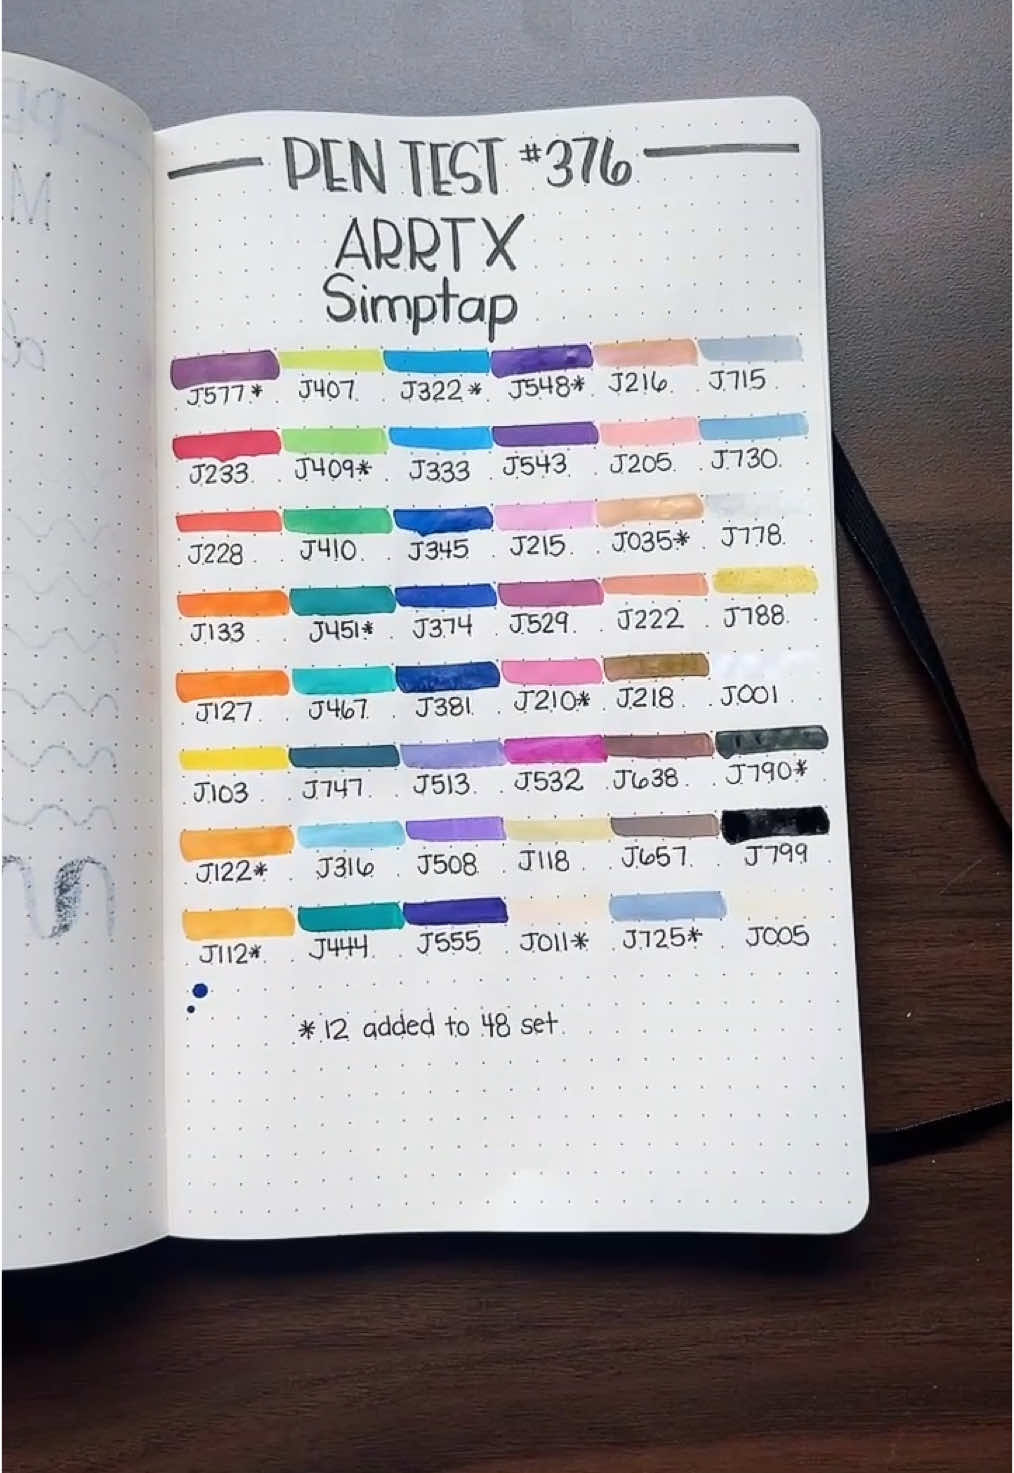 PEN TEST #376
ARRTX
Simptap
J577* J407 J322* J548* J216 J715
J233 J409* J333 J543 J205 J730
J228 J410 J345 J215 J035* J778
J133 J451* J374 J529 J222 J788
J127 J467 J381 J210* J218 J001
J103 J747 J513 J532 J638 J790*
J122* J316 J508 J118 J657 J799
J112* J444 J555 J011* J725* J005
*12 added to 48 set